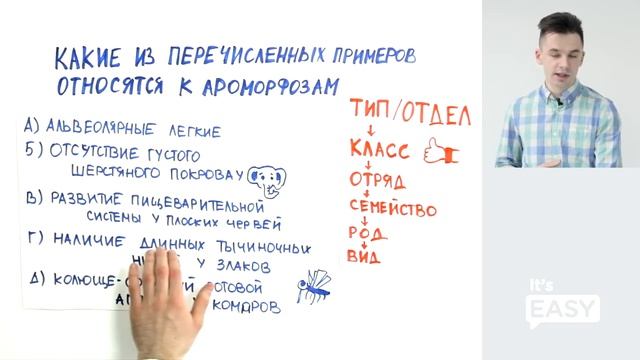 КАКИЕ ИЗ ПЕРЕЧИСЛЕННЫХ ПРИМЕРОВ
ОТНОСЯТСЯ К АРОМОРФОЗАМ
А) АЛЬВЕОЛЯРНЫЕ ЛЕГКИЕ
Б) ОТСУТСТВИЕ ГУСТОГО
ШЕРСТЯНОГО ПОКРОВА У
В) РАЗВИТИЕ ПИЩЕВАРИТЕЛЬНОЙ
СИСТЕМЫ У ПЛОСКИХ ЧЕРВЕЙ
Г) НАЛИЧИЕ ДЛИННЫХ ТЫЧИНОЧНЫХ
У ЗЛАКОВ
Д) КОЛЮЩЕ- РОТОВОЙ
КОМАРОВ
ТИП/ОТДЕЛ
КЛАСС
ОТРЯД
СЕМЕЙСТВО
РОД
ВИД
It's
EASY